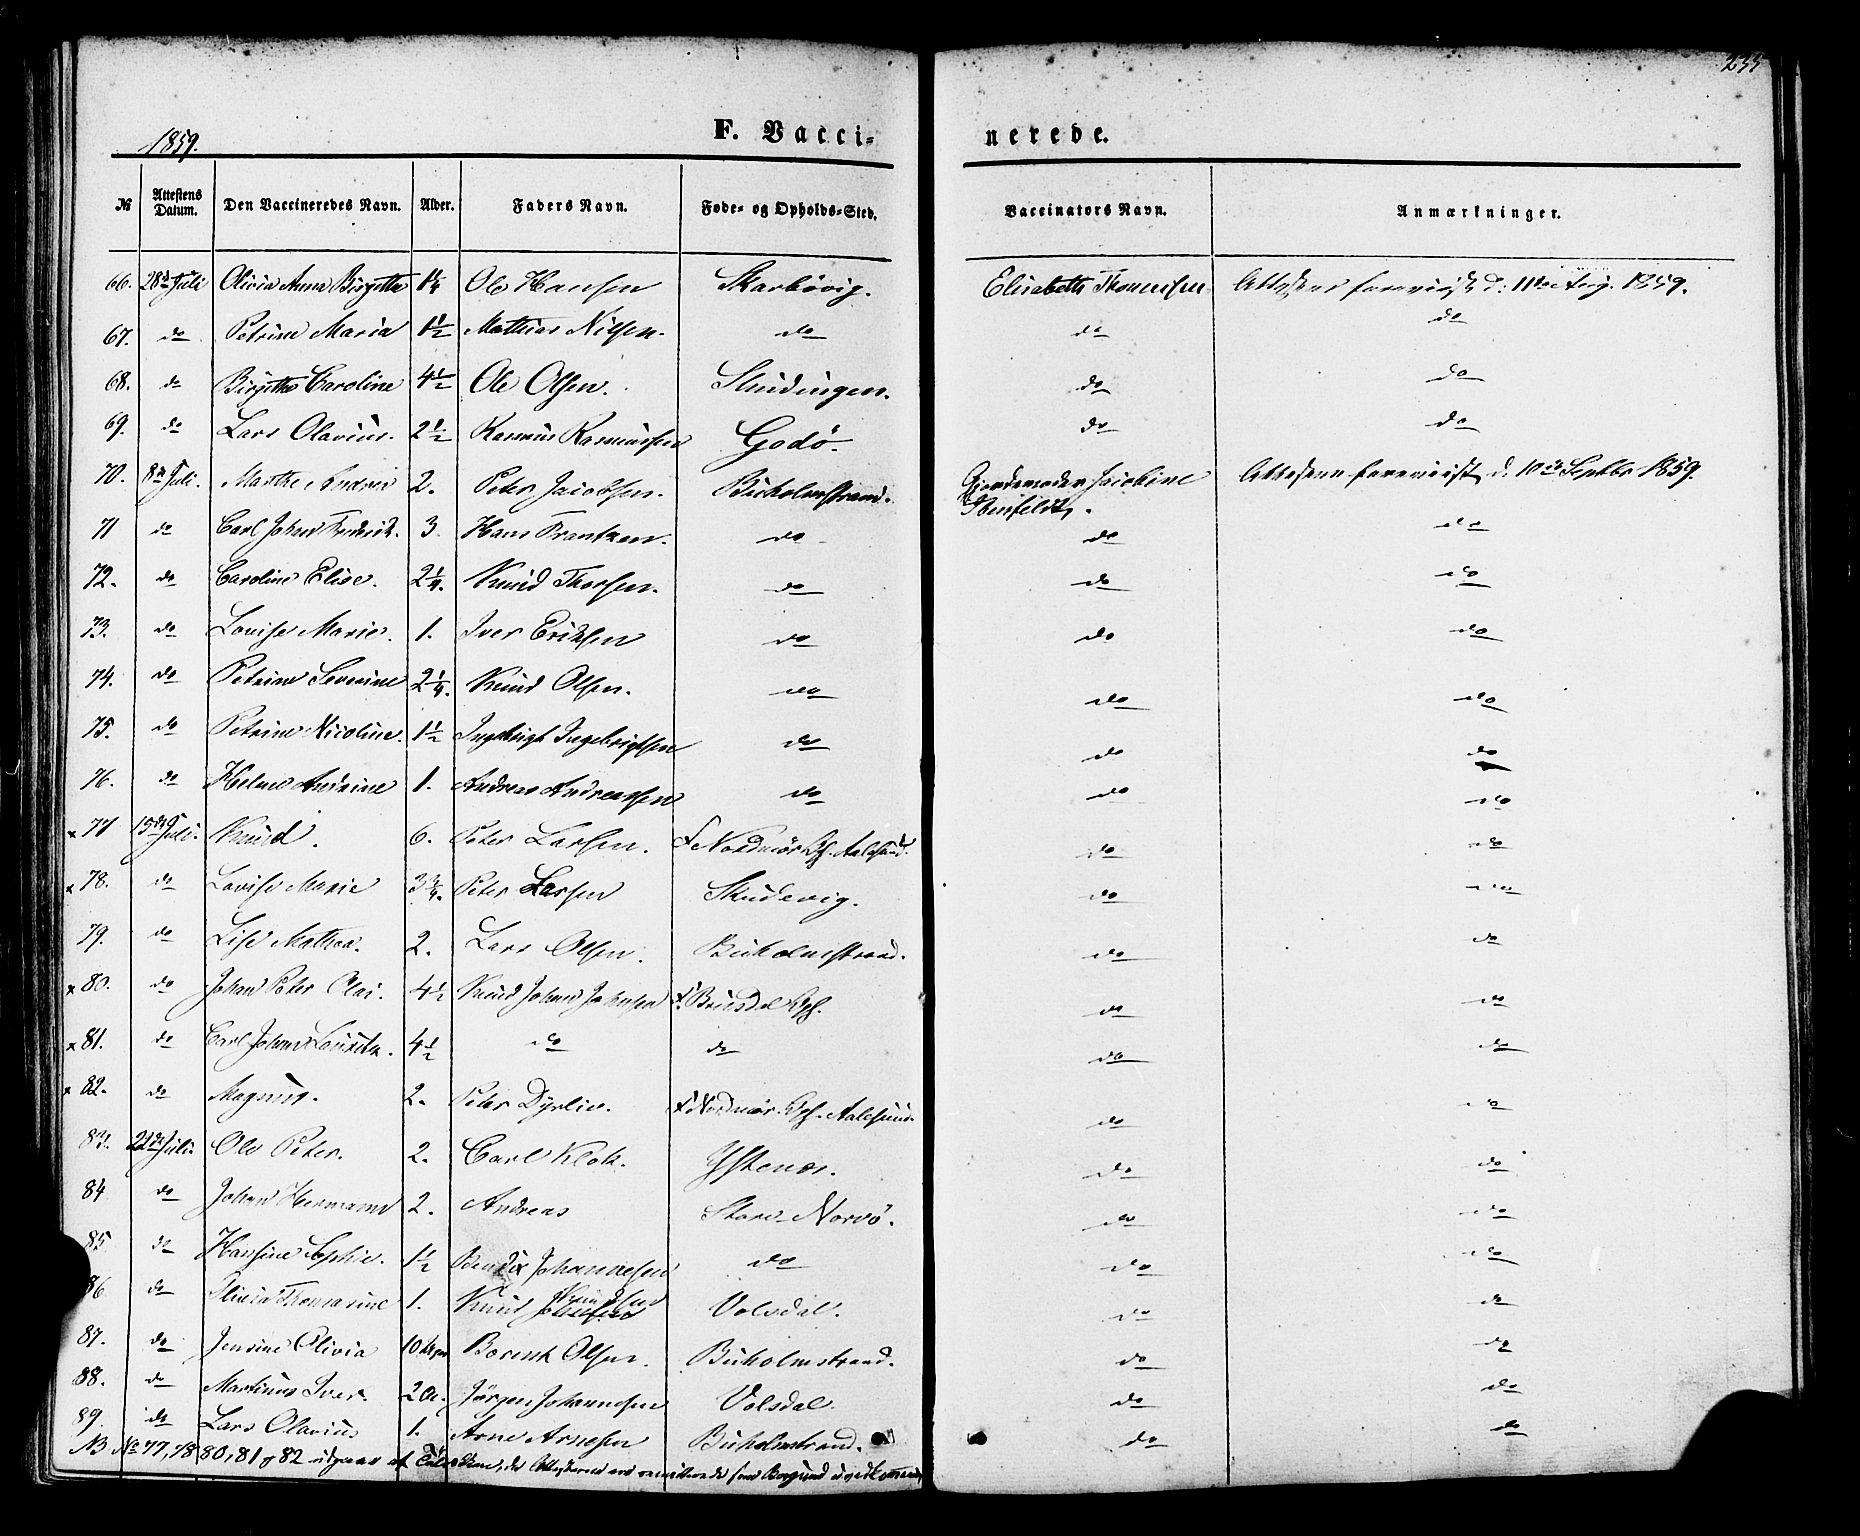 233
1859.
F. Vacci=
nerede.
№ Attestens Datum. Den Vaccineredes Navn. Alder. Faders Navn. Føde- og Opholds-Sted. Vaccinators Navn. Anmærkninger.
66. 28de Juli Olivia Anna Birgitte 1¼ Ole Hansen Skarbövig. Elisabeth Thomesen Attesten foreviist d: 11te Aug. 1859.
67. do Petrine Maria 1½ Mathias Nilsen. do do do
68. do Birgitte Caroline 4½ Ole Olsen. Slindingen. do do
69. do Lars Olavius. 2½ Rasmus Rasmussen Godö. do do
70. 8de Juli. Marthe Andrea 2. Peter Jacobsen. Buholmstrand. Gjordemoder Jacobine Attesten foreviist d. 10de Septbr 1859.
71 do Carl Johan Fredrik. 3. Hans Frantzen. do do do
72. do Caroline Elise. 2¼. Knud Thorsen. do do do
73. do Lovise Marie. 1. Iver Eriksen do do do
74. do Petrine Severine 2¼. Knud Olsen. do do do
75. do Petrine Nicoline. 1½ Ingebrigt Ingebrigtsen do do do
76. do Andrine 1. Andreas Andreassen do do do
x 77 15de Juli. Knud. 6. Peter Larsen. F. Nordmör Oph. Aalesund. do do
x 78. do Lovise Marie 3¾. Peter Larsen Skudevig. do do
79. do Lise Mathea. 2. Lars Olsen. Buholmstrand. do do
x 80. do Johan Peter Olai. 4½ Knud Johan Johnsen F. Oph. do do
x 81. do Carl Johan Lauritz. 4½ do do do do
x 82. do Magnus. 2. Peter F. Nordmör. Oph. Aalesund. do do
83. 22de Juli. Ole Peter. 2. Carl Klok. Ystenes. do do
84 do Johan Hermann 2. Andreas Store-Norvö. do do
85 do Hansine Sophie. 1½ Bendix Johannesen do do do
86 do Olivia Thomasine 1. Knud Knudsen Volsdal. do do
87. do Jensine Olivia 10 Borent Olsen. Buholmstrand. do do
88. do Martinus Iver. 2 a. Jörgen Johannesen Volsdal. do do
89. do Lars Olavius 1. Arne Arnesen Buholmstrand. do do
NB No 77, 78 80, 81 og 82 udgaaer af